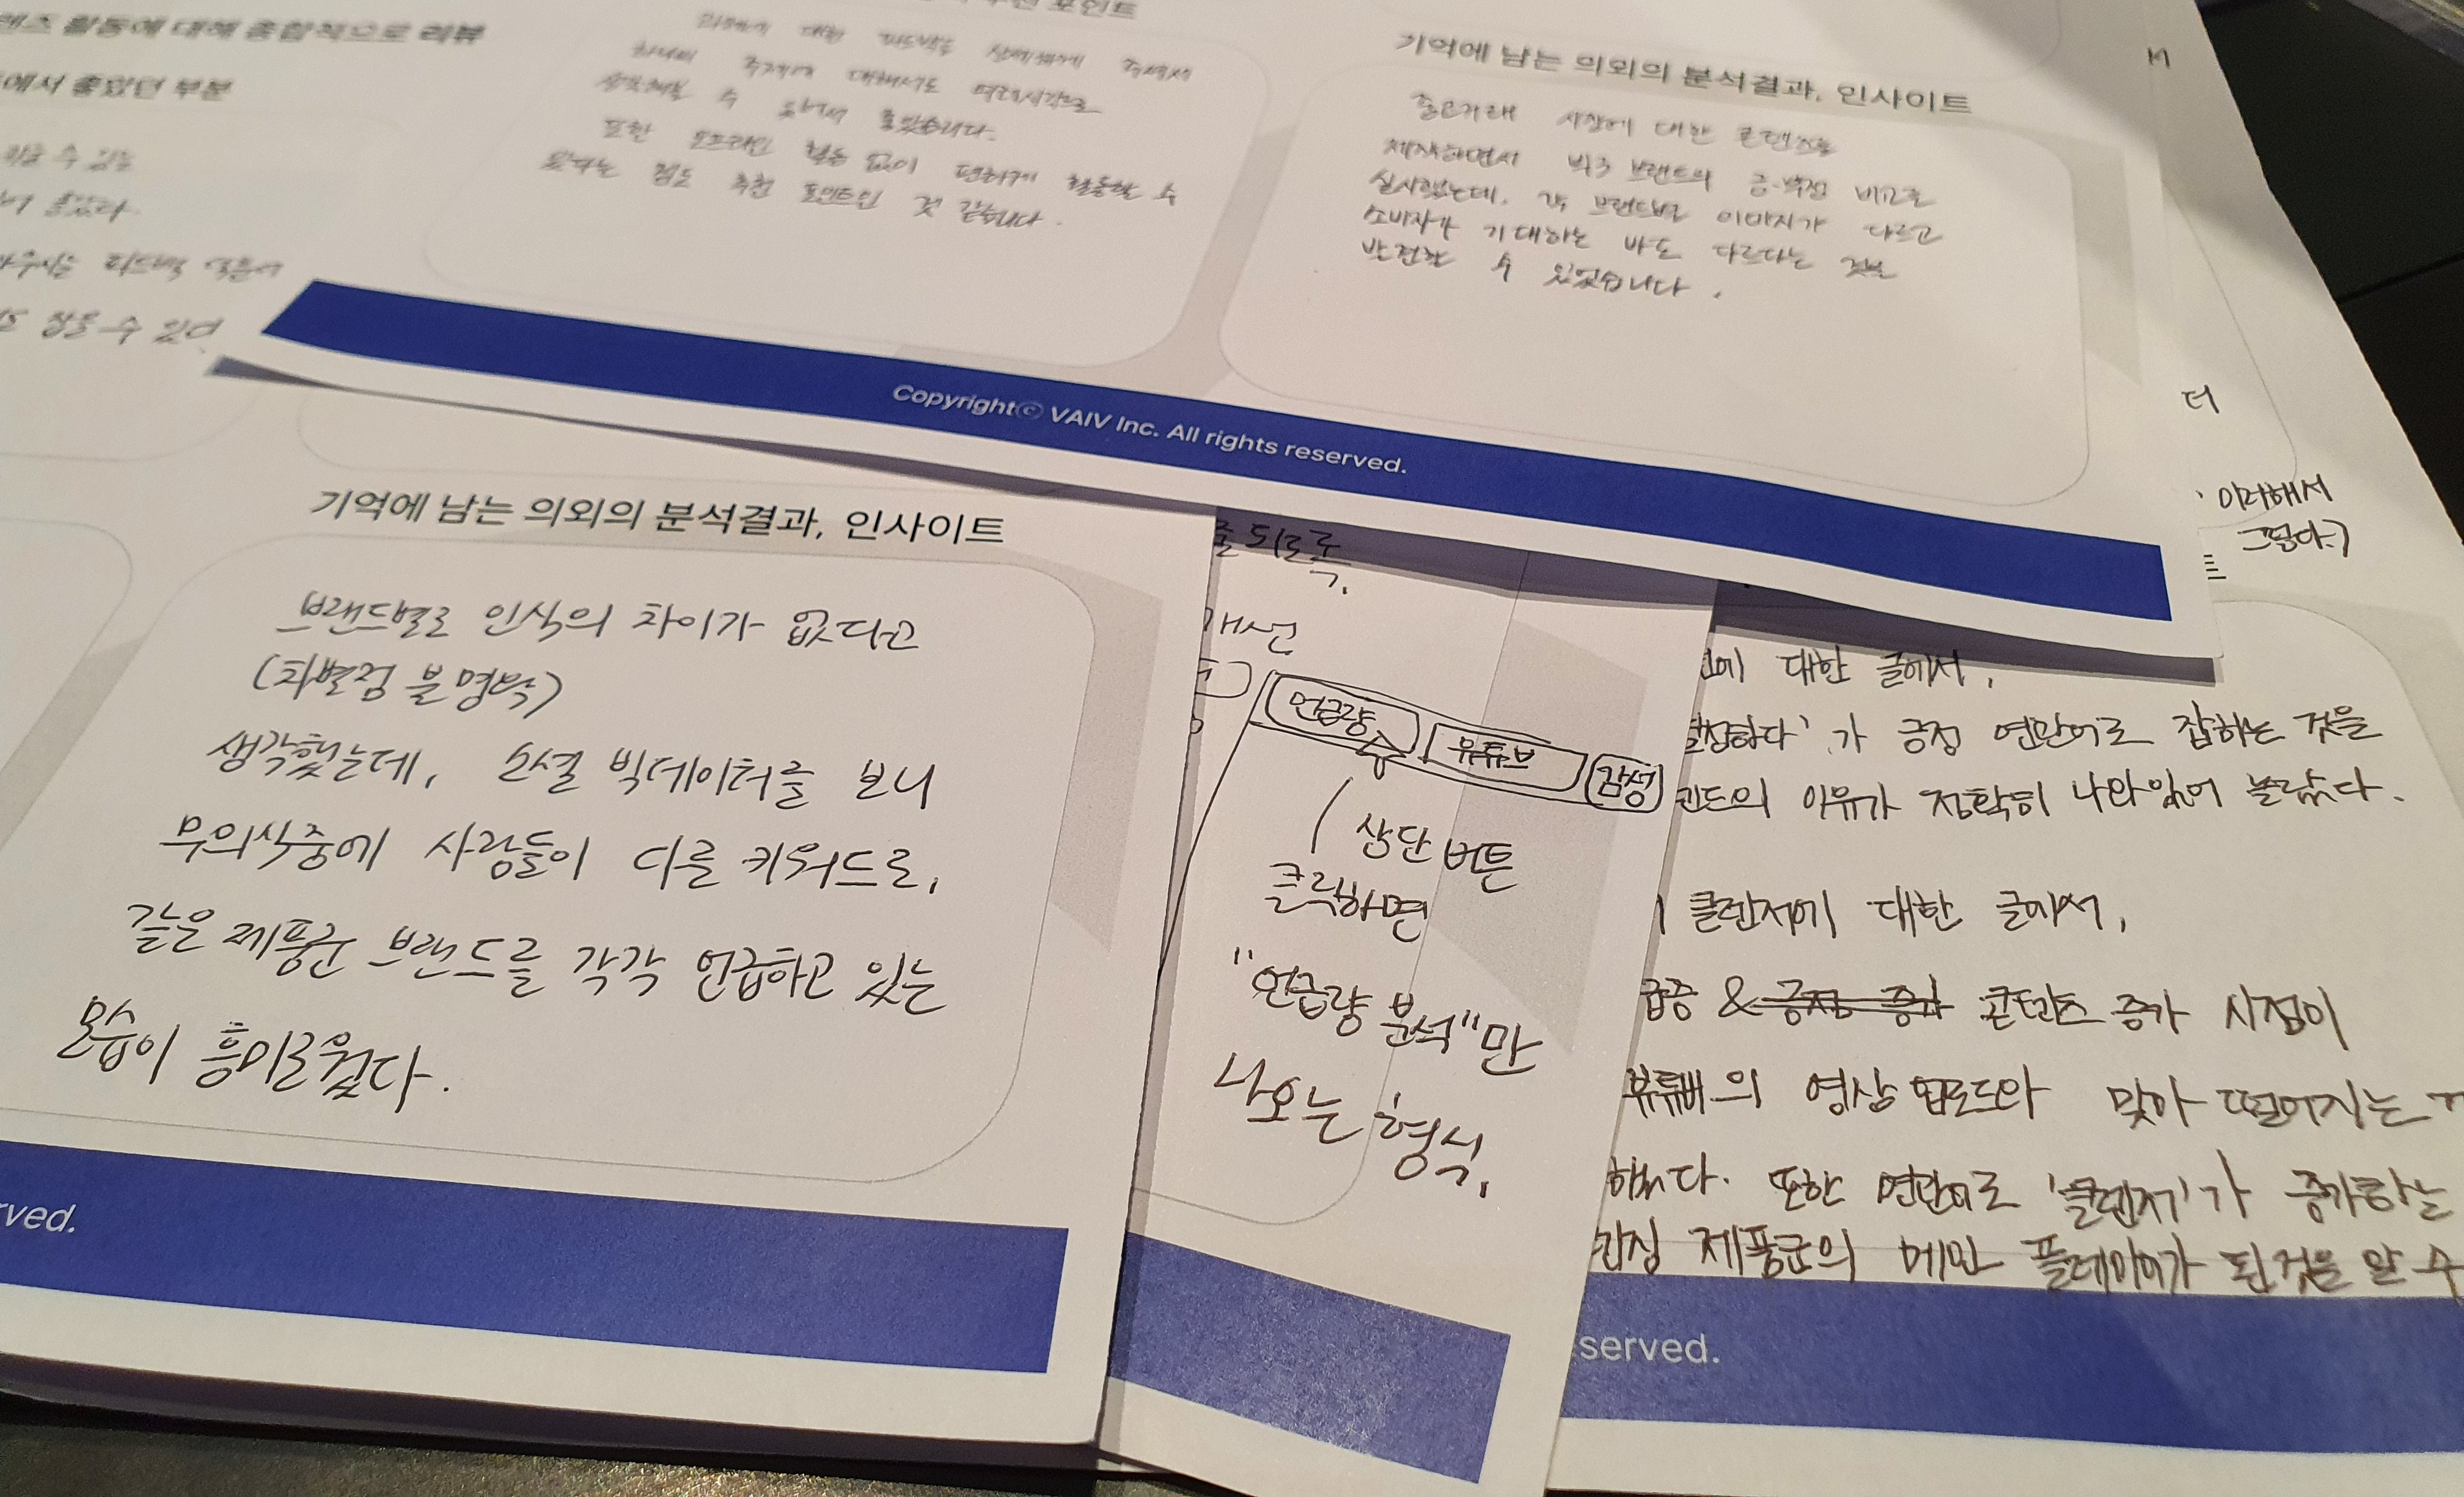 활동에 대해 종합적으로 리뷰
에서 좋았던 부분
수 있는
좋았다.
피드백
수 있어
포인트
대한 피드백을 상세하게 주셔서
하나의 주제에 대해서도 여러시각으로
수 있어서 좋았습니다.
또한 오프라인 활동 없이 편하게 활동할 수
있다는 점도 추천 포인트인 것 같습니다.
기억에 남는 의외의 분석결과, 인사이트
중고거래 시장에 대한 콘텐츠를
제작하면서 브랜드의 긍·부정 비교를
실시했는데, 각 브랜드별 이미지가 다르고
소비자가 기대하는 바도 다르다는 것을
발견할 수 있었습니다.
Copyright© VAIV Inc. All rights reserved.
더
이러해서
그렇다.)
기억에 남는 의외의 분석결과, 인사이트
브랜드별로 인식의 차이가 없다고
(차별점 불명확)
생각했는데, 소셜 빅데이터를 보니
무의식중에 사람들이 다른 키워드로,
같은 제품군 브랜드를 각각 언급하고 있는
모습이 흥미로웠다.
rved.
되도록.
개선
언급량 유튜브 감성
상단 버튼
클릭하면
"언급량 분석"만
나오는 형식.
에 대한 글에서,
가 긍정 연관어로 잡히는 것을
의 이유가 정확히 나와있어 놀랐다.
클렌저에 대한 글에서,
급증 & 긍정 증가 콘텐츠 증가 시점이
유튜버의 영상 업로드와 맞아 떨어지는
했다. 또한 연관어로 '클렌저'가 증가하는
제품군의 메인 플레이어가 된것을 알 수
served.